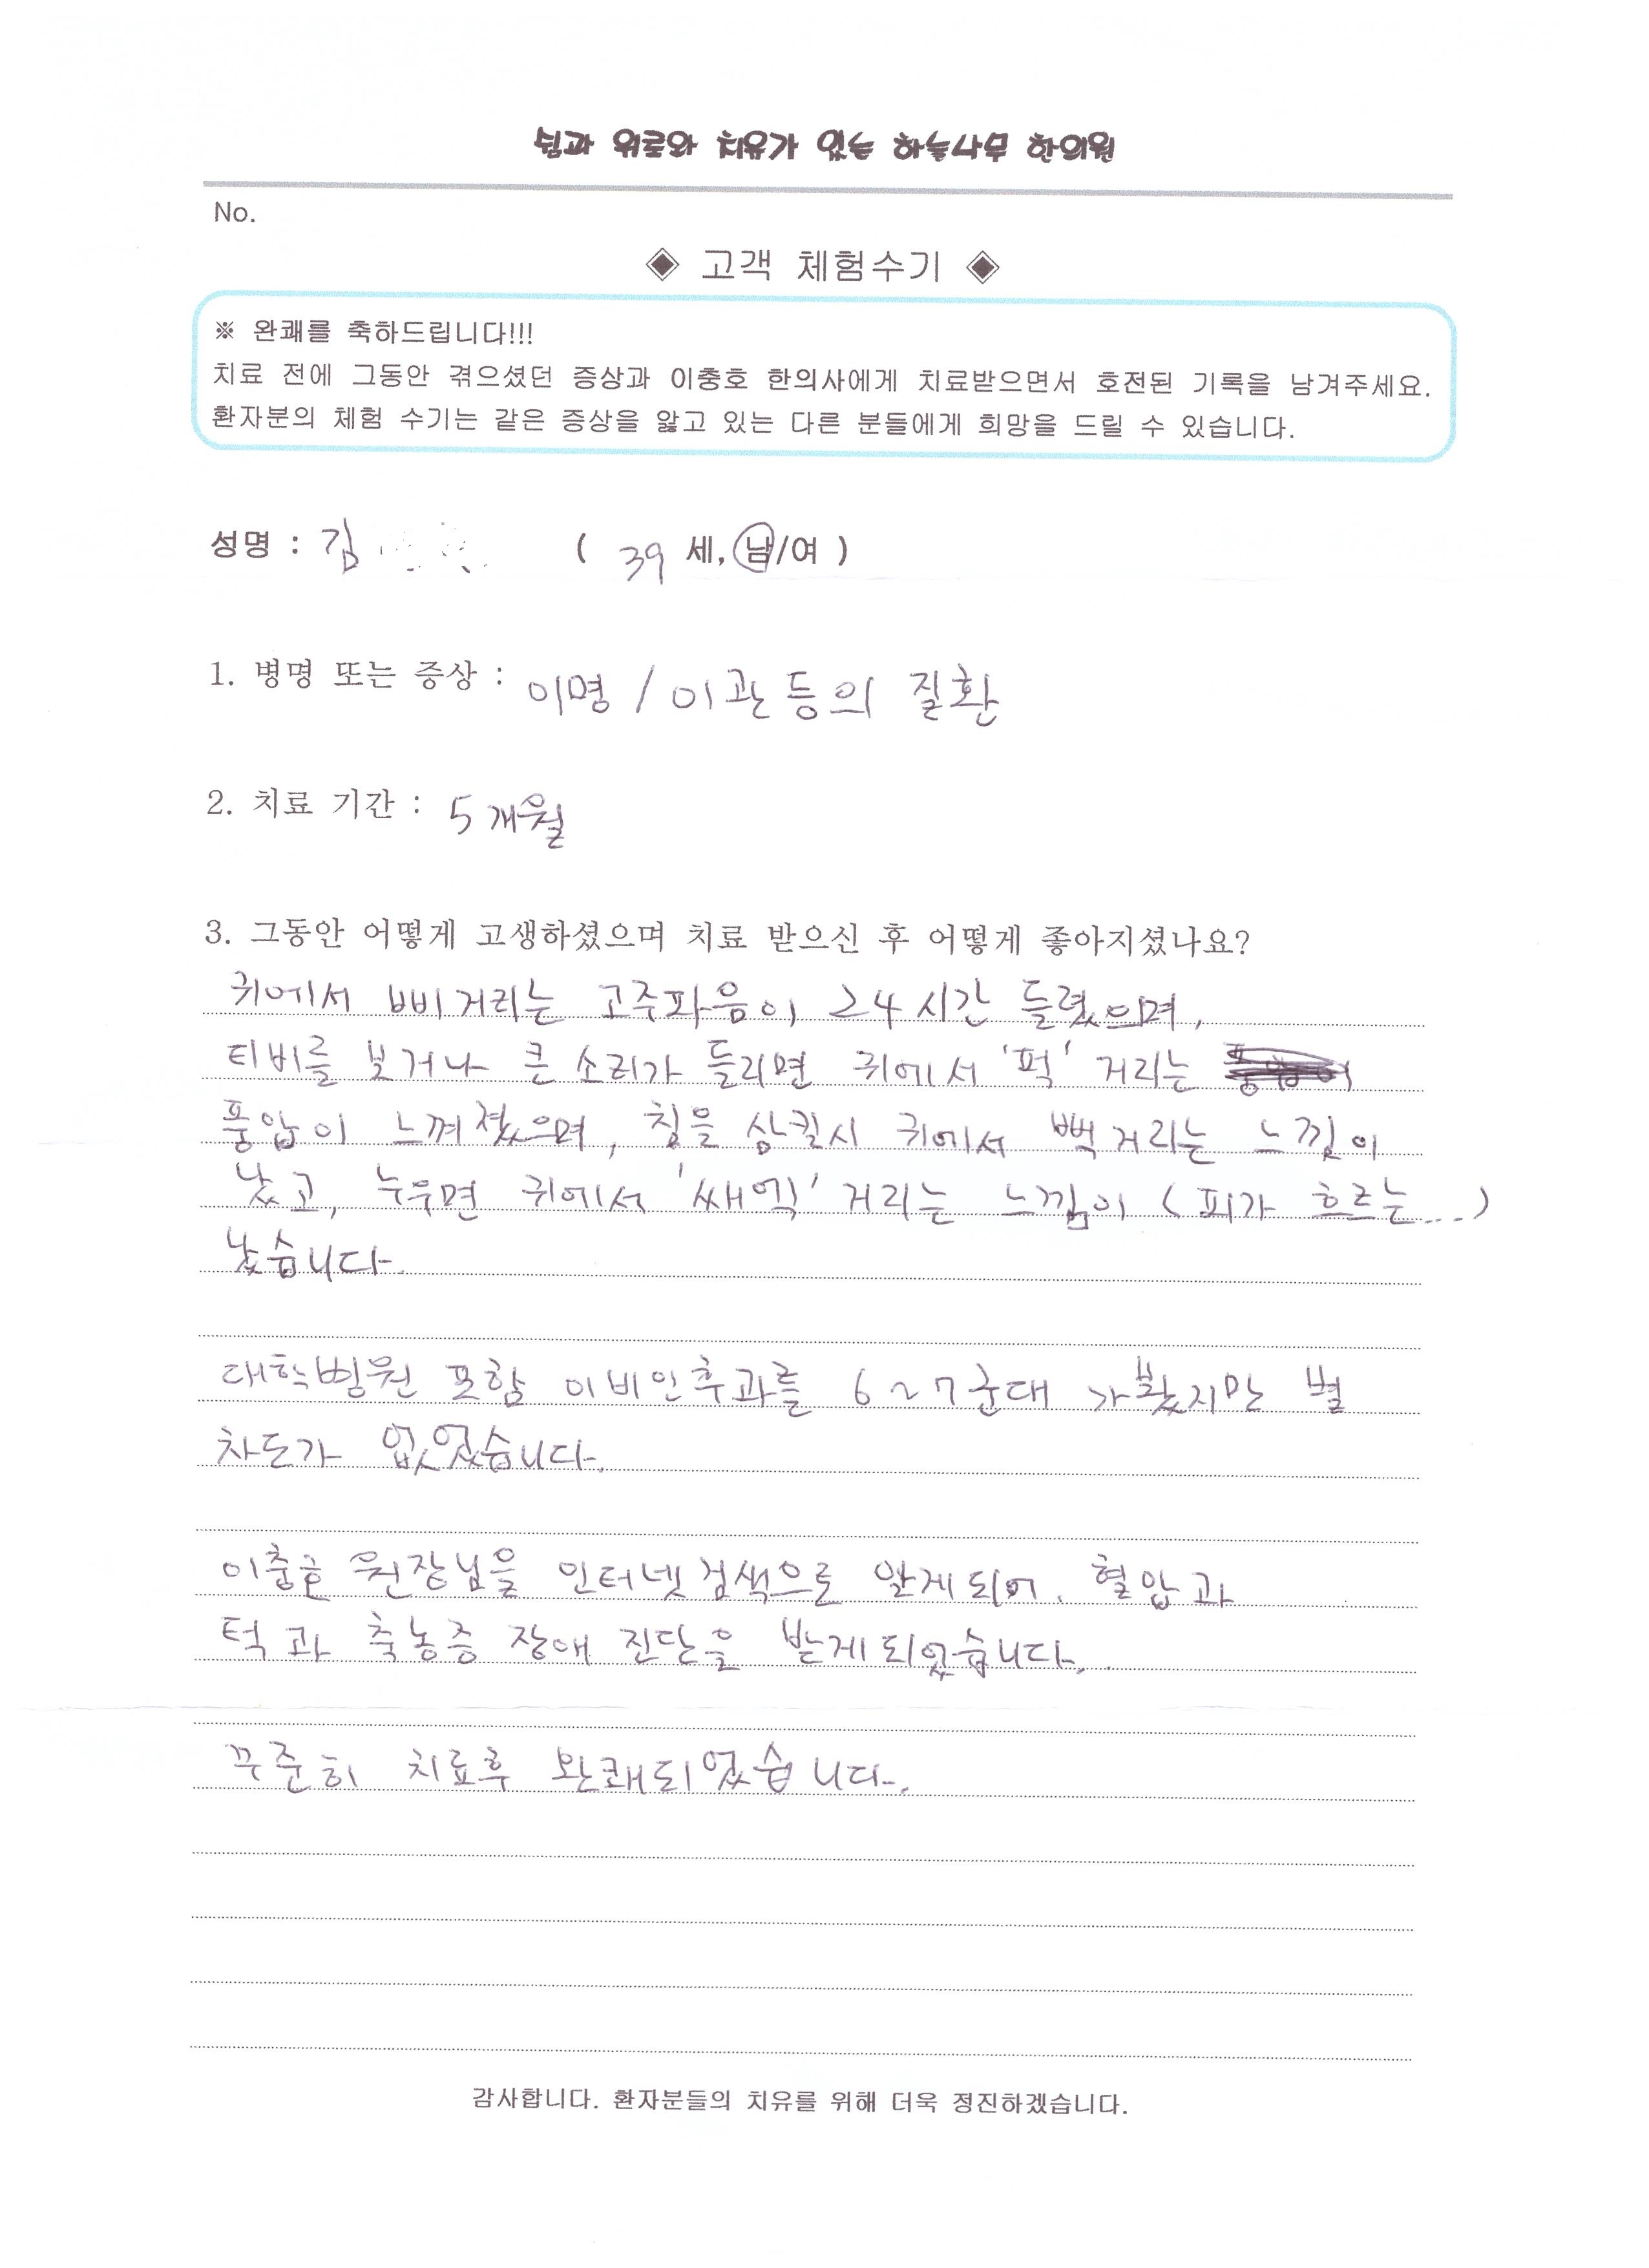 쉼과 위로와 치유가 있는 하늘나무 한의원
No.
◈ 고객 체험수기 ◈
※ 완쾌를 축하드립니다!!!
치료 전에 그동안 겪으셨던 증상과 이충호 한의사에게 치료받으면서 호전된 기록을 남겨주세요.
환자분의 체험 수기는 같은 증상을 앓고 있는 다른 분들에게 희망을 드릴 수 있습니다.
성명 : 김 ( 39 세, 남/여 )
1. 병명 또는 증상 : 이명 / 이관등의 질환
2. 치료 기간 : 5개월
3. 그동안 어떻게 고생하셨으며 치료 받으신 후 어떻게 좋아지셨나요?
귀에서 삐거리는 고주파음이 24시간 들렸으며,
티비를 보거나 큰 소리가 들리면 귀에서 '퍽' 거리는
풍압이 느껴졌으며, 침을 삼킬시 귀에서 뻑거리는 느낌이
났고, 누우면 귀에서 '쌔액' 거리는 느낌이 (피가 흐르는...)
났습니다.
대학병원 포함 이비인후과를 6~7군대 가봤지만 별
차도가 없었습니다.
이충호 원장님을 인터넷검색으로 알게되어. 혈압과
턱과 축농증 장애 진단을 받게되었습니다.
꾸준히 치료후 완쾌되었습니다.
감사합니다. 환자분들의 치유를 위해 더욱 정진하겠습니다.